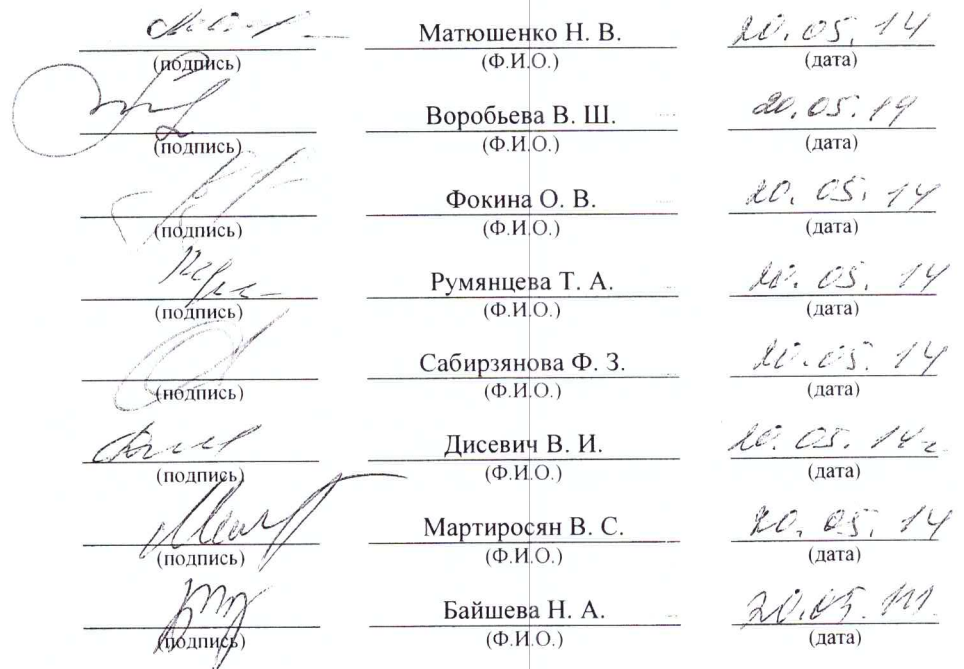 Матюшенко Н. В. 20.05.14
(подпись) (Ф.И.О.) (дата)
Воробьева В. Ш. 20.05.14
(подпись) (Ф.И.О.) (дата)
Фокина О. В. 20.05.14
(подпись) (Ф.И.О.) (дата)
Румянцева Т. А. 20.05.14
(подпись) (Ф.И.О.) (дата)
Сабирзянова Ф. З. 20.05.14
(подпись) (Ф.И.О.) (дата)
Дисевич В. И. 20.05.14г.
(подпись) (Ф.И.О.) (дата)
Мартиросян В. С. 20.05.14
(подпись) (Ф.И.О.) (дата)
Байшева Н. А. 20.05.14
(подпись) (Ф.И.О.) (дата)